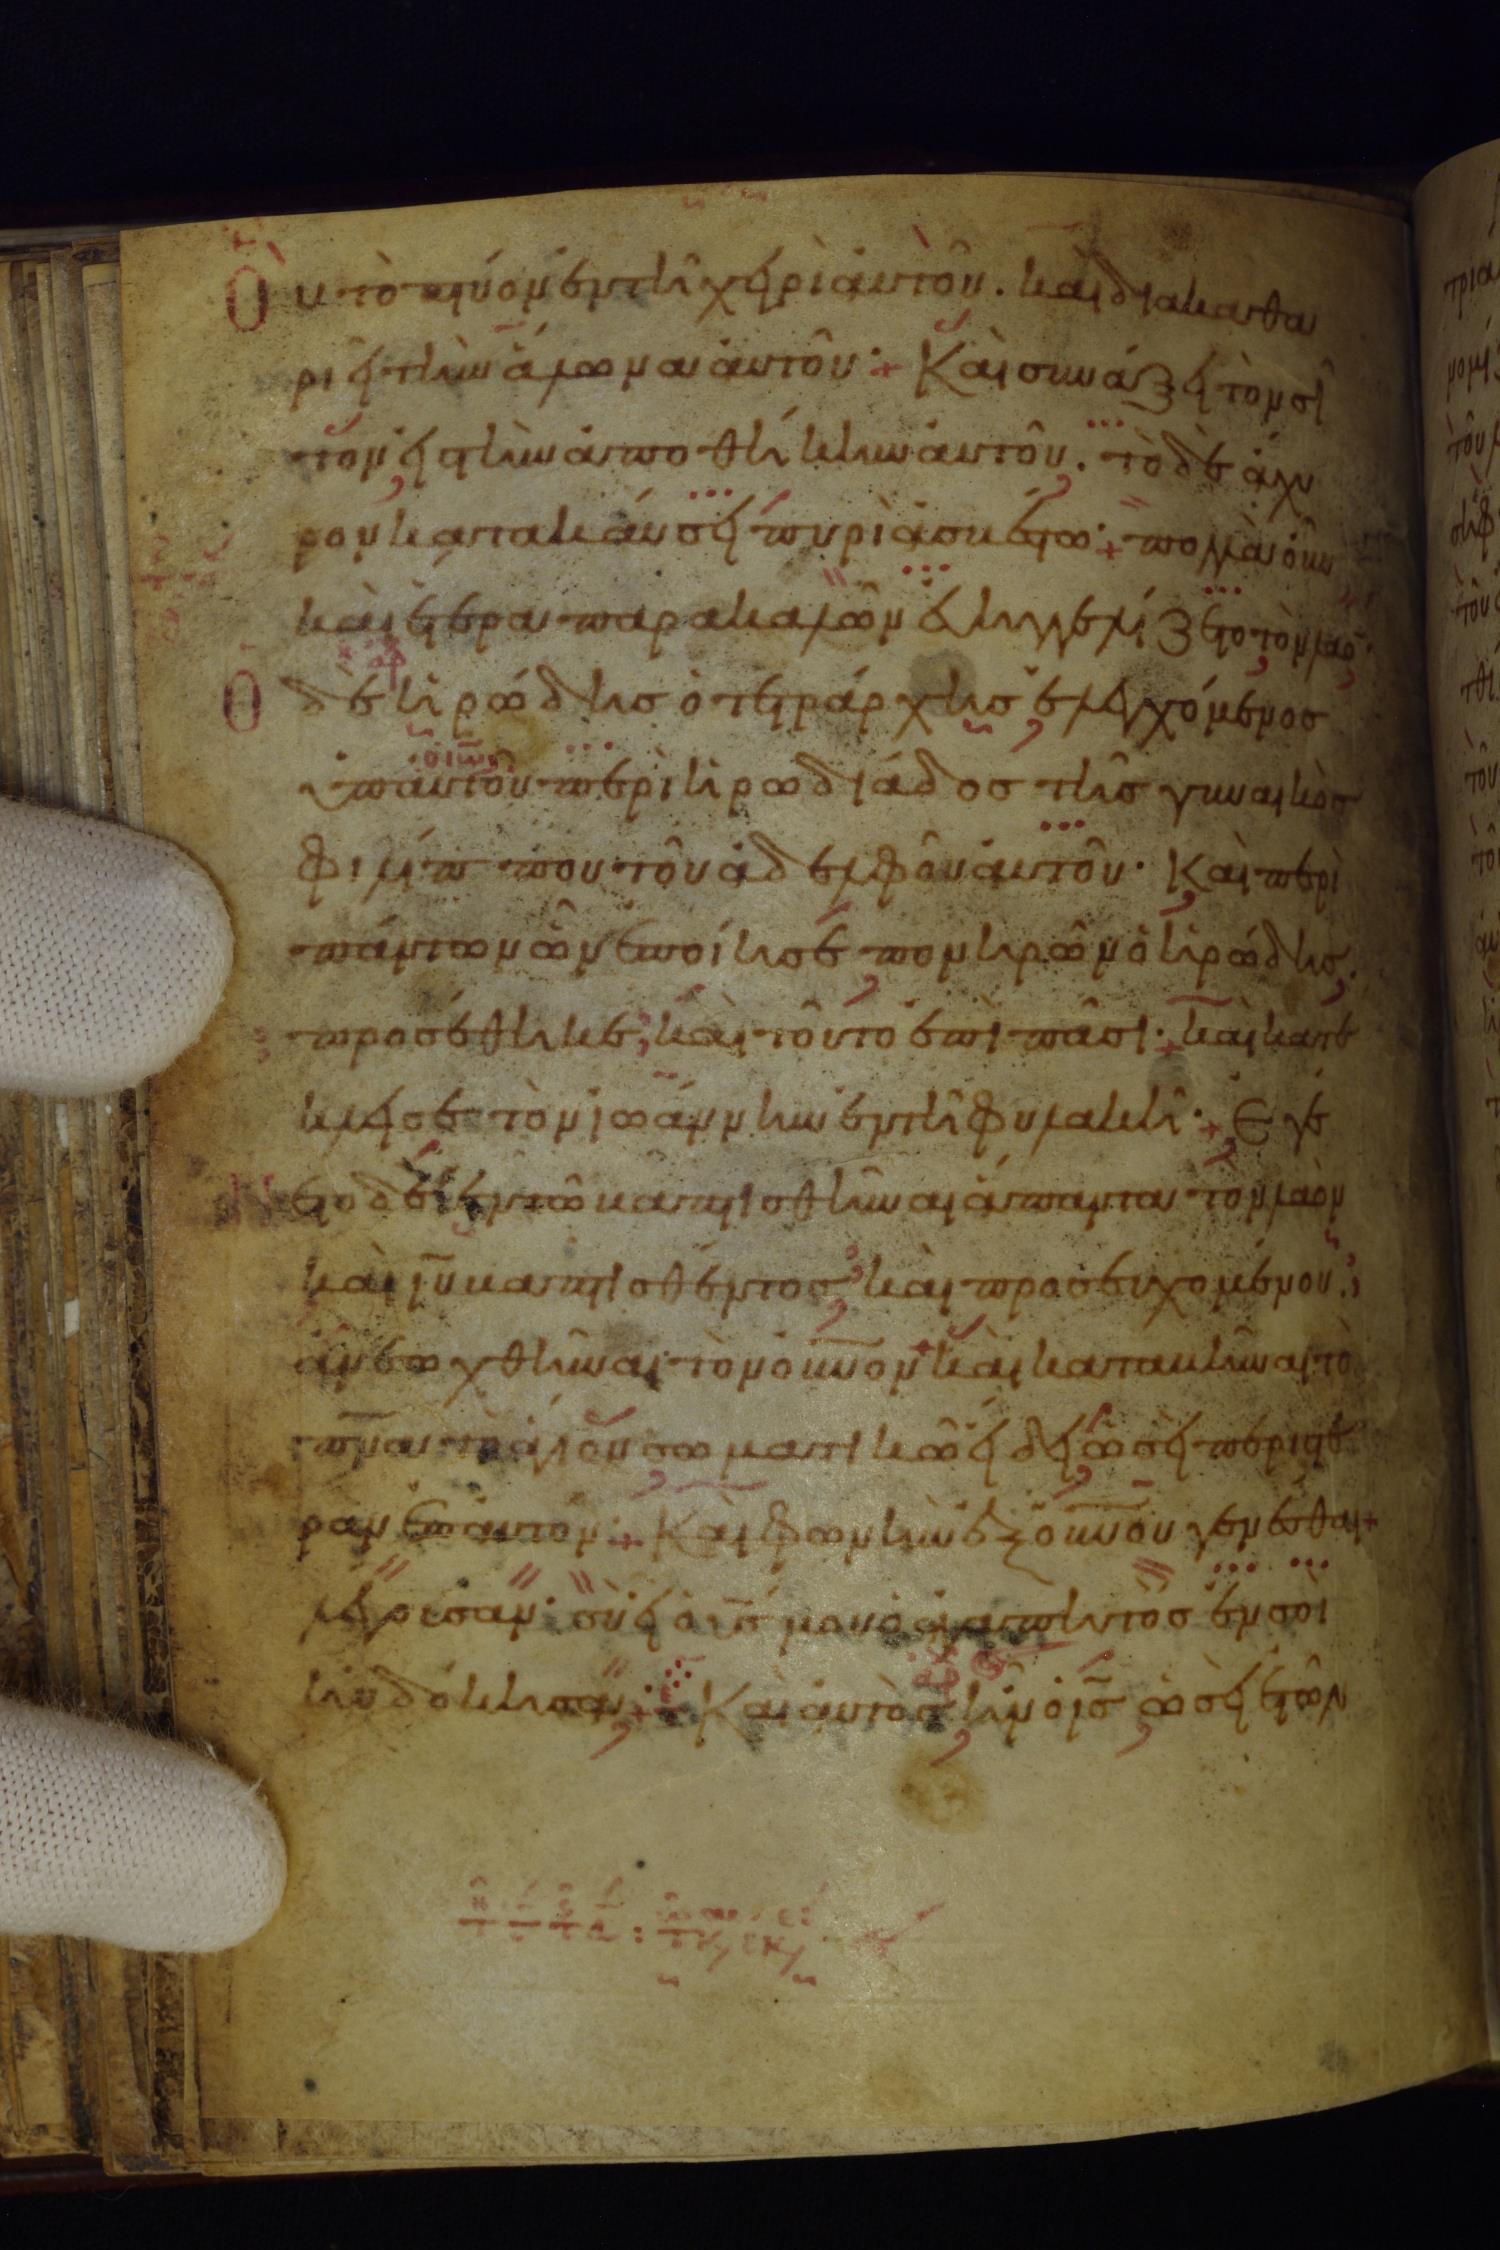 Ὁυ τὸ πτύον ἐν τῆ χειρὶ ἀυτοῦ. καὶ διακαθα
ριεῖ τὴν ἅλωνα ἀυτοῦ· Καὶ συνάξει τὸν σῖ
τον εἰς τὴν ἀποθήκην ἀυτοῦ. τὸ δὲ ἄχυ
ρον κατακάυσει πυρὶ ἀσβέστω· πολλὰ οὖν
καὶ ἕτερα παρακαλῶν ἐυηγγελίζετο τὸν λαὸν·
Ὁ δὲ ἡρώδης ὁ τετράρχης ἐλεγχόμενος
ὑπ ἀυτοῦ περὶ ἡρωδιάδος τῆς γυναικὸς
φιλίππου τοῦ ἀδελφοῦ ἀυτοῦ· Καὶ περὶ
πάντων ὧν ἐποίησε πονηρῶν ὁ ἡρώδης,
προσέθηκε καὶ τοῦτο ἐπὶ πᾶσι· καὶ κατέ
κλεισε τὸν ἰωάννην ἐν τῆ φυλακῆ· Ἐγέ
νετο δὲ ἐν τῶ βαπτισθῆναι ἅπαντα τὸν λαὸν
καὶ ιῦ βαπτισθέντος καὶ προσευχομένου.
ἀνεωχθῆναι τὸν οὐνον καὶ καταβῆναι τὸ
πνα τὸ ἅγιον σωματικῶ εἴδει ὡσεὶ περιστε
ρὰν ἐπ ἀυτόν· Καὶ φωνὴν ἐξ οὐνου γενέσθαι
λέγουσαν· σὺ εἶ ὁ υς μου ὁ ἀγαπητὸς ἐν σοὶ
ηὐδόκησα· Καὶ ἀυτὸς ἦν ὁ ις ὡσεὶ ἐτῶν